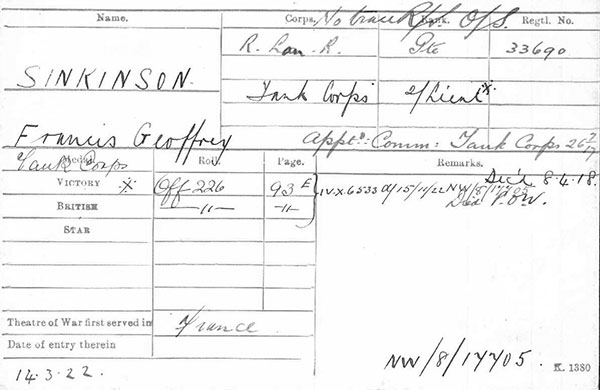 Name. Corps. No trace R/d. O/S. Rank. Regtl. No.
R. Lan. R. Pte 33690
SINKINSON.
Tank Corps 2/Lieut *
Francis Geoffrey
Apptd: Comm: Tank Corps 26 7/17
Tank Corps
Medal. Roll. Page. Remarks.
Dec'd 8.4.18.
VICTORY * Off 226 93 E IV.X.6533 d/15/11/22 NW/8/17705
BRITISH —"— —"— Died P.O.W.
STAR
Theatre of War first served in France
Date of entry therein
14.3.22.
NW/8/17705. K. 1380